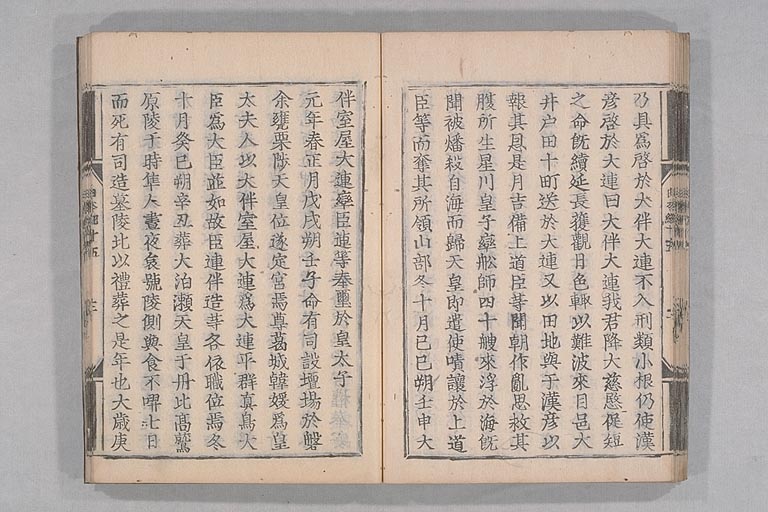 乃具爲啓於大伴大連不入刑類小根仍使漢
彦啓於大連曰大伴大連我君降大慈愍促短
之命既續延長獲觀日色輙以難波來目邑大
井户田十町送於大連又以田地與于漢彦以
報其恩是月吉備上道臣等聞朝作亂思救其
腹所生星川皇子率舩師四十艘來浮於海既
聞被燔殺自海而歸天皇即遣使嘖讓於上道
臣等而奪其所領山部冬十月己巳朔壬申大
伴室屋大連率臣連等奉璽於皇太子
元年春正月戊戌朔壬子命有司設壇場於磐
余甕栗陟天皇位遂定宮焉尊葛城韓媛爲皇
太夫人以大伴室屋大連爲大連平群真鳥大
臣爲大臣並如故臣連伴造等各依職位焉冬
十月癸巳朔辛丑葬大泊瀬天皇于丹比高鷲
原陵于時隼人晝夜哀號陵側與食不喫七日
而死有司造墓陵北以禮葬之是年也大歲庚